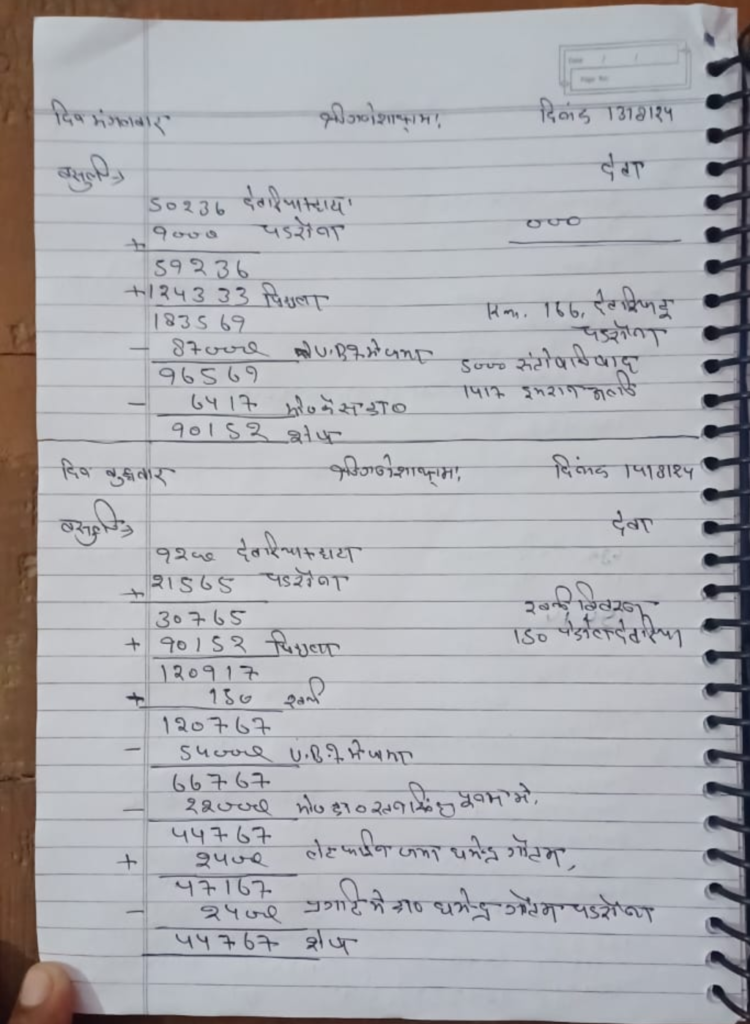 Date / /
Page No.
दिन मंगलवार श्री गणेशाय नमः दिनांक 13/8/24
वसुली→ देना
50236 देवरिया + हाटा
+ 9000 पडरौना 000
59236
+ 124333 पिछला
183569 Km. 166, देवरिया टू
- 87000 U.B.I मे जमा पडरौना
96569 5000 संतोष निषाद
- 6417 1417 इमरान अली
90152 शेष
दिन बुधवार श्री गणेशाय नमः दिनांक 14/8/24
वसुली→ देना
9200 देवरिया + हाटा
+ 21565 पडरौना
30765 खर्च विवरण
+ 90152 पिछला 150 पेट्रोल देवरिया
120917
+ 150 खर्च
120767
- 54000 U.B.I मे जमा
66767
- 22000 मे,
44767
+ 2400 जमा धर्मेन्द्र गौतम,
47167
- 2400 प्रगति मे धर्मेन्द्र गौतम पडरौना
44767 शेष